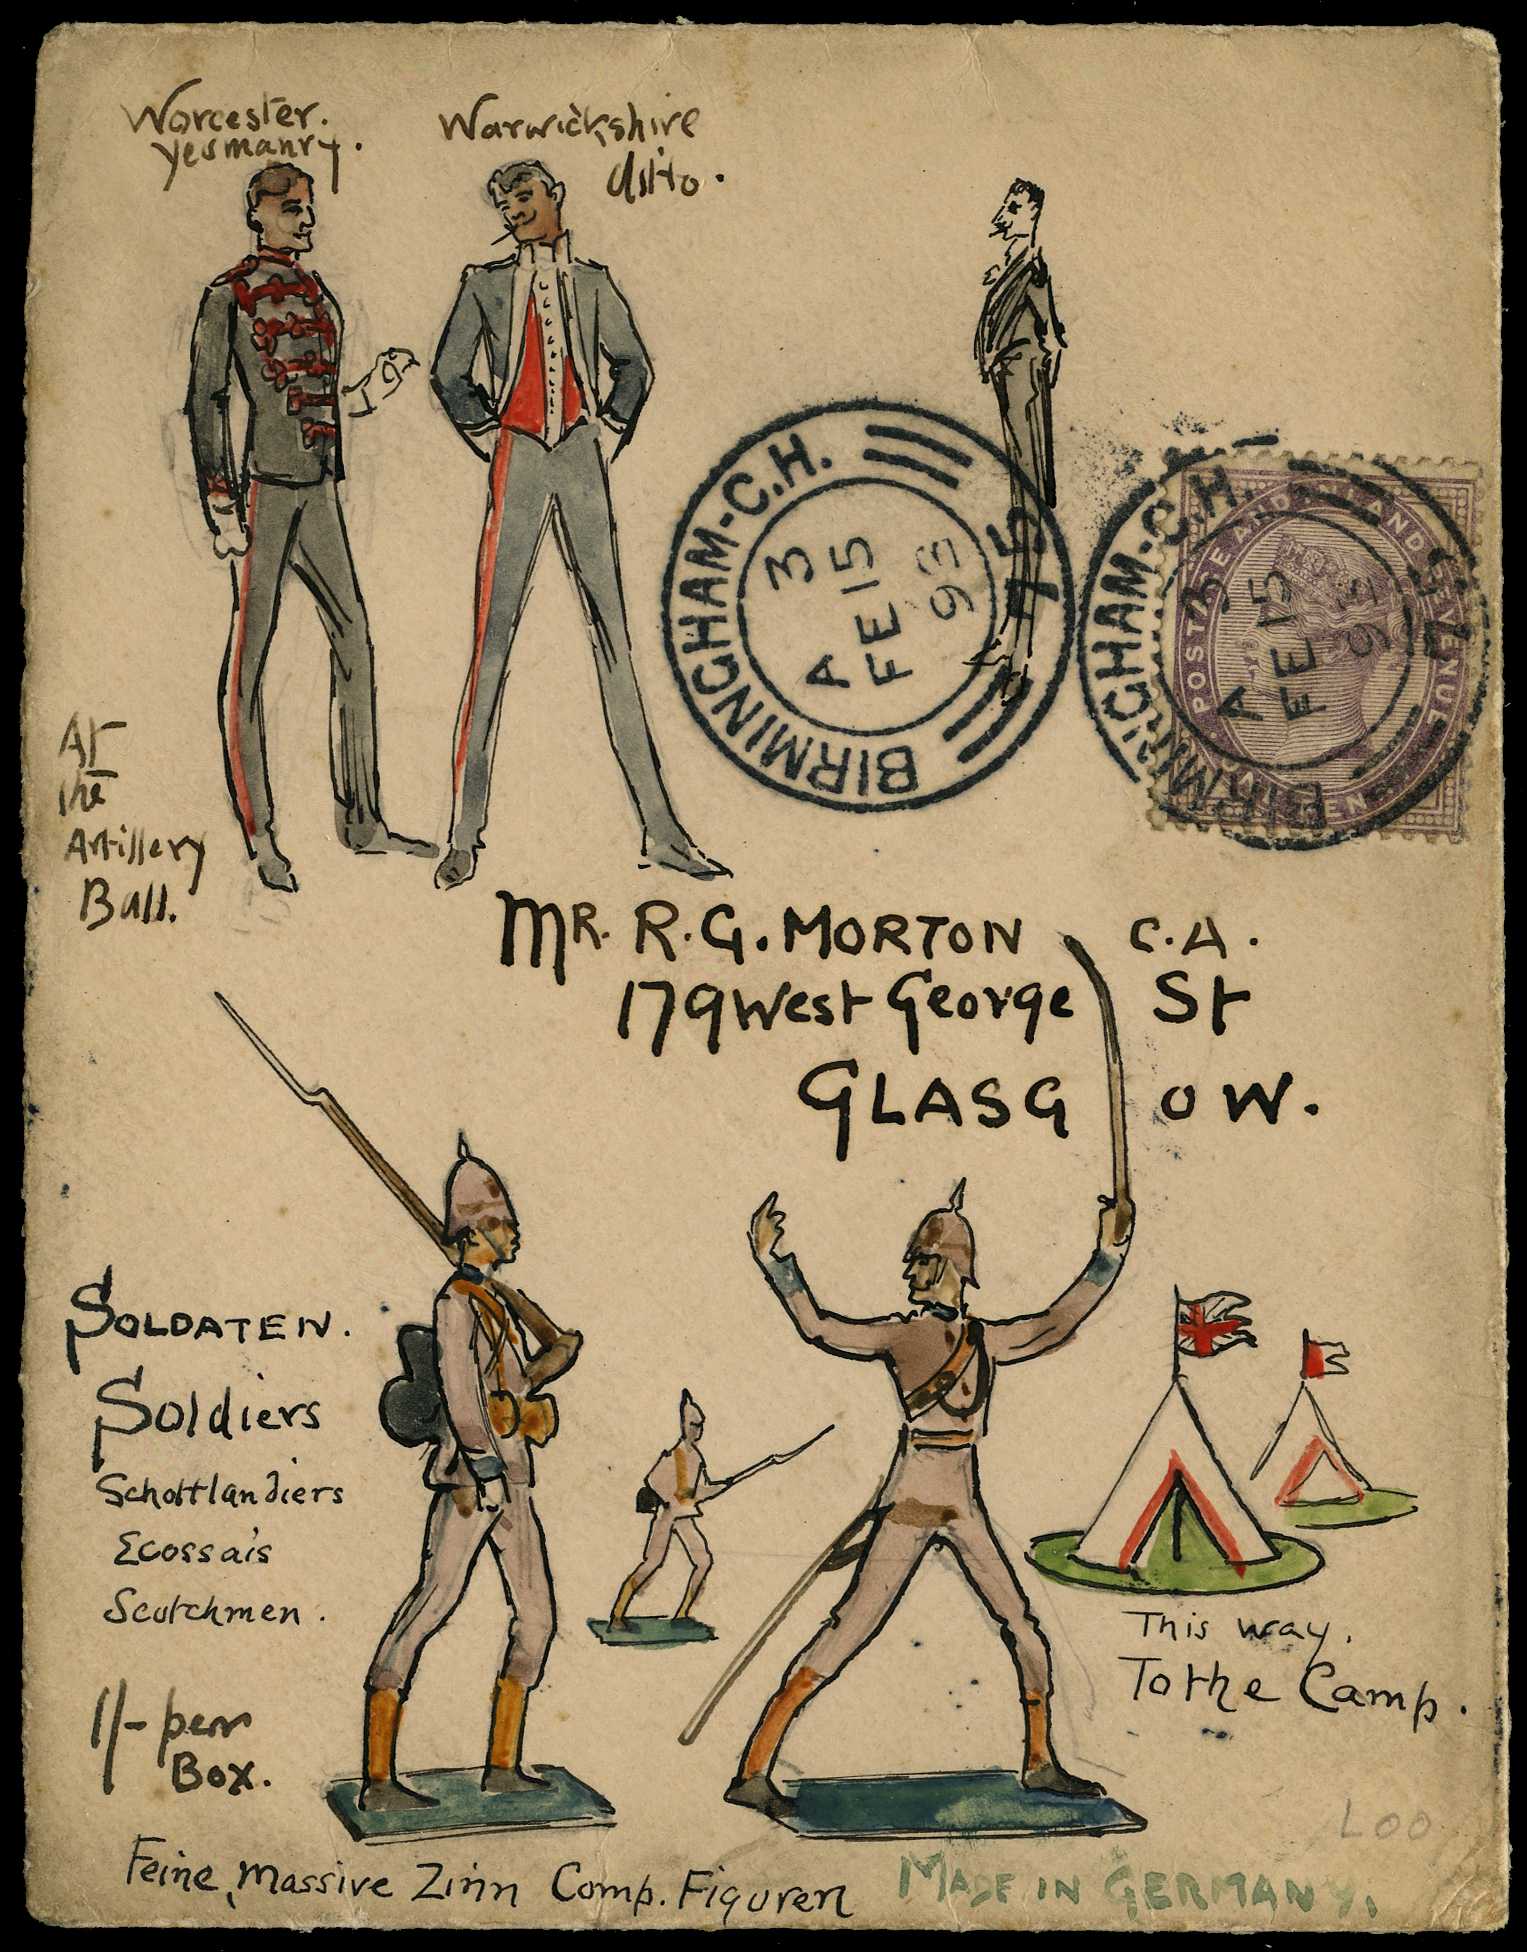 Worcester.
Yeomanry.
Warwickshire
ditto.
At
the
Artillery
Ball.
BIRMINGHAM-C.H.
A 3
FE 15
93
75
BIRMINGHAM-C.H.
A 3
FE 15
93
75
POSTAGE AND INLAND REVENUE
MR. R. G. MORTON C.A.
179 West George St
GLASGOW.
SOLDATEN.
Soldiers
Schottlandiers
Ecossais
Scotchmen.
1/- per
Box.
This way.
To the Camp.
Feine, massive Zinn Comp. Figuren
MADE IN GERMANY.
LOO